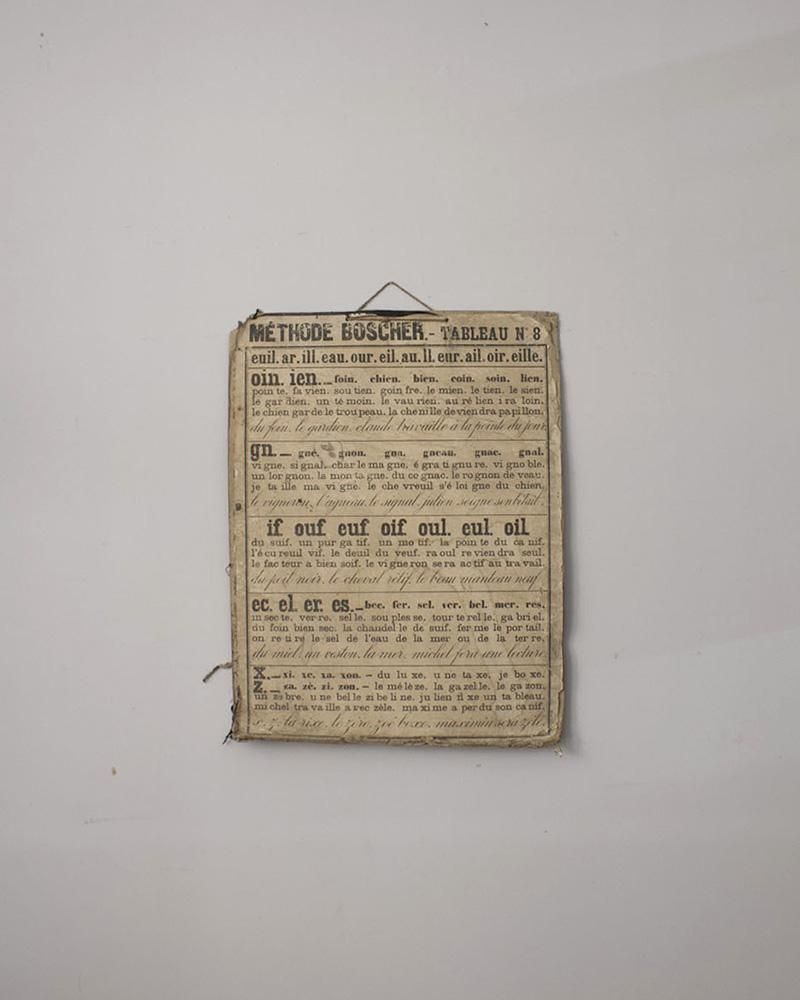 MÉTHODE BOSCHER.- TABLEAU N° 8
euil. ar. ill. eau. our. eil. au. ll. eur. ail. oir. eille.
oin. ien. _ foin. chien. bien. coin. soin. lien.
poin te. fa vien. sou tien. goin fre. le mien. le tien. le sien.
le gar dien. un té moin. le vau rien. au ré lien i ra loin.
le chien gar de le trou peau. la che ni lle de vien dra pa pi llon.
du foin. le gardien. claude travaille à la pointe du jour.
gn. _ gné. gnon. gna. gneau. gnac. gnal.
vi gne. si gnal. char le ma gne. é gra ti gnu re. vi gno ble.
un lor gnon. la mon ta gne. du co gnac. le ro gnon de veau.
je ta ille ma vi gne. le che vreuil s'é loi gne du chien.
le vigneron. l'agneau. le signal. julien soigne son bétail.
if ouf euf oif oul. eul. oil
du suif. un pur ga tif. un mo tif. la poin te du ca nif.
l'é cu reuil vif. le deuil du veuf. ra oul re vien dra seul.
le fac teur a bien soif. le vi gne ron se ra ac tif au tra vail.
du poil noir. le cheval rétif. le beau manteau neuf
ec. el. er. es. _ bec. fer. sel. ver. bel. mer. res.
in sec te. ver re. sel le. sou ples se. tour te rel le. ga bri el.
du foin bien sec. la chandel le de suif. fer me le por tail.
on re ti re le sel de l'eau de la mer ou de la ter re.
du miel. un veston. la mer. michel fera une lecture.
X. _ xi. xe. xa. xon. – du lu xe. u ne ta xe. je bo xe.
Z. _ za. zé. zi. zon. – le mé lè ze. la ga zel le. le ga zon.
un zè bre. u ne bel le zi be li ne. ju lien fi xe un ta bleau.
mi chel tra va ille a vec zèle. ma xi me a per du son ca nif.
x. z. la rixe. le zéro. zoé boxe. maximin sera zélé.